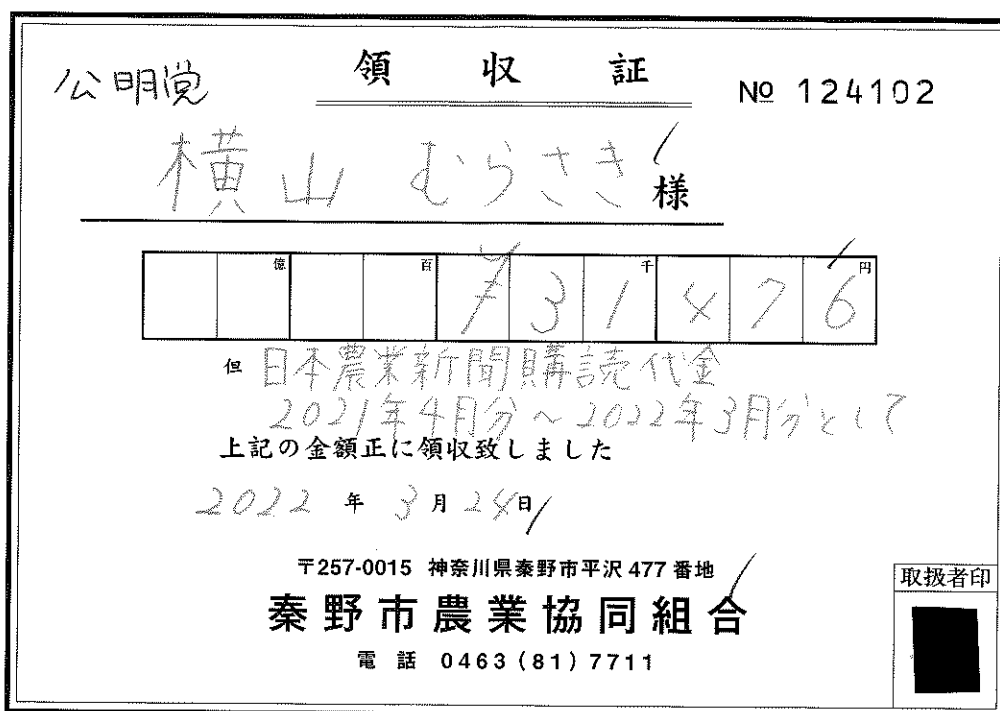 領収証
公明党
No 124102
横山 むらさき 様
億 百 千 円
¥31476
但 日本農業新聞購読代金
2021年4月分～2022年3月分として
上記の金額正に領収致しました
2022年3月24日
〒257-0015 神奈川県秦野市平沢477番地
秦野市農業協同組合
電話 0463(81)7711
取扱者印